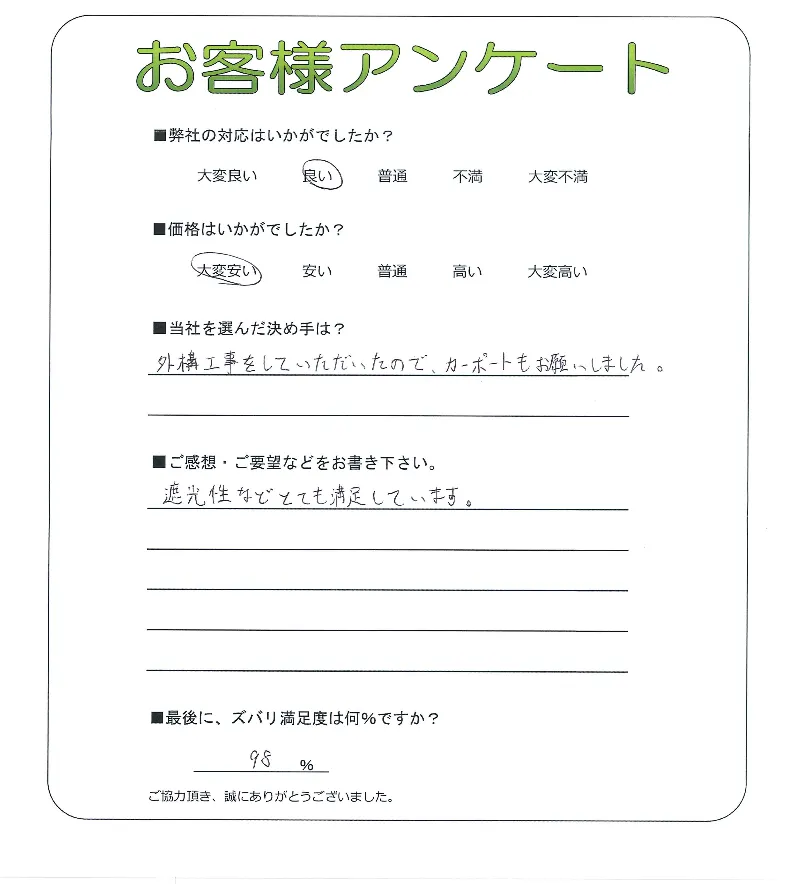 お客様アンケート
■弊社の対応はいかがでしたか？
大変良い 良い 普通 不満 大変不満
■価格はいかがでしたか？
大変安い 安い 普通 高い 大変高い
■当社を選んだ決め手は？
外構工事をしていただいたので、カーポートもお願いしました。
■ご感想・ご要望などをお書き下さい。
遮光性などとても満足しています。
■最後に、ズバリ満足度は何%ですか？
98 %
ご協力頂き、誠にありがとうございました。